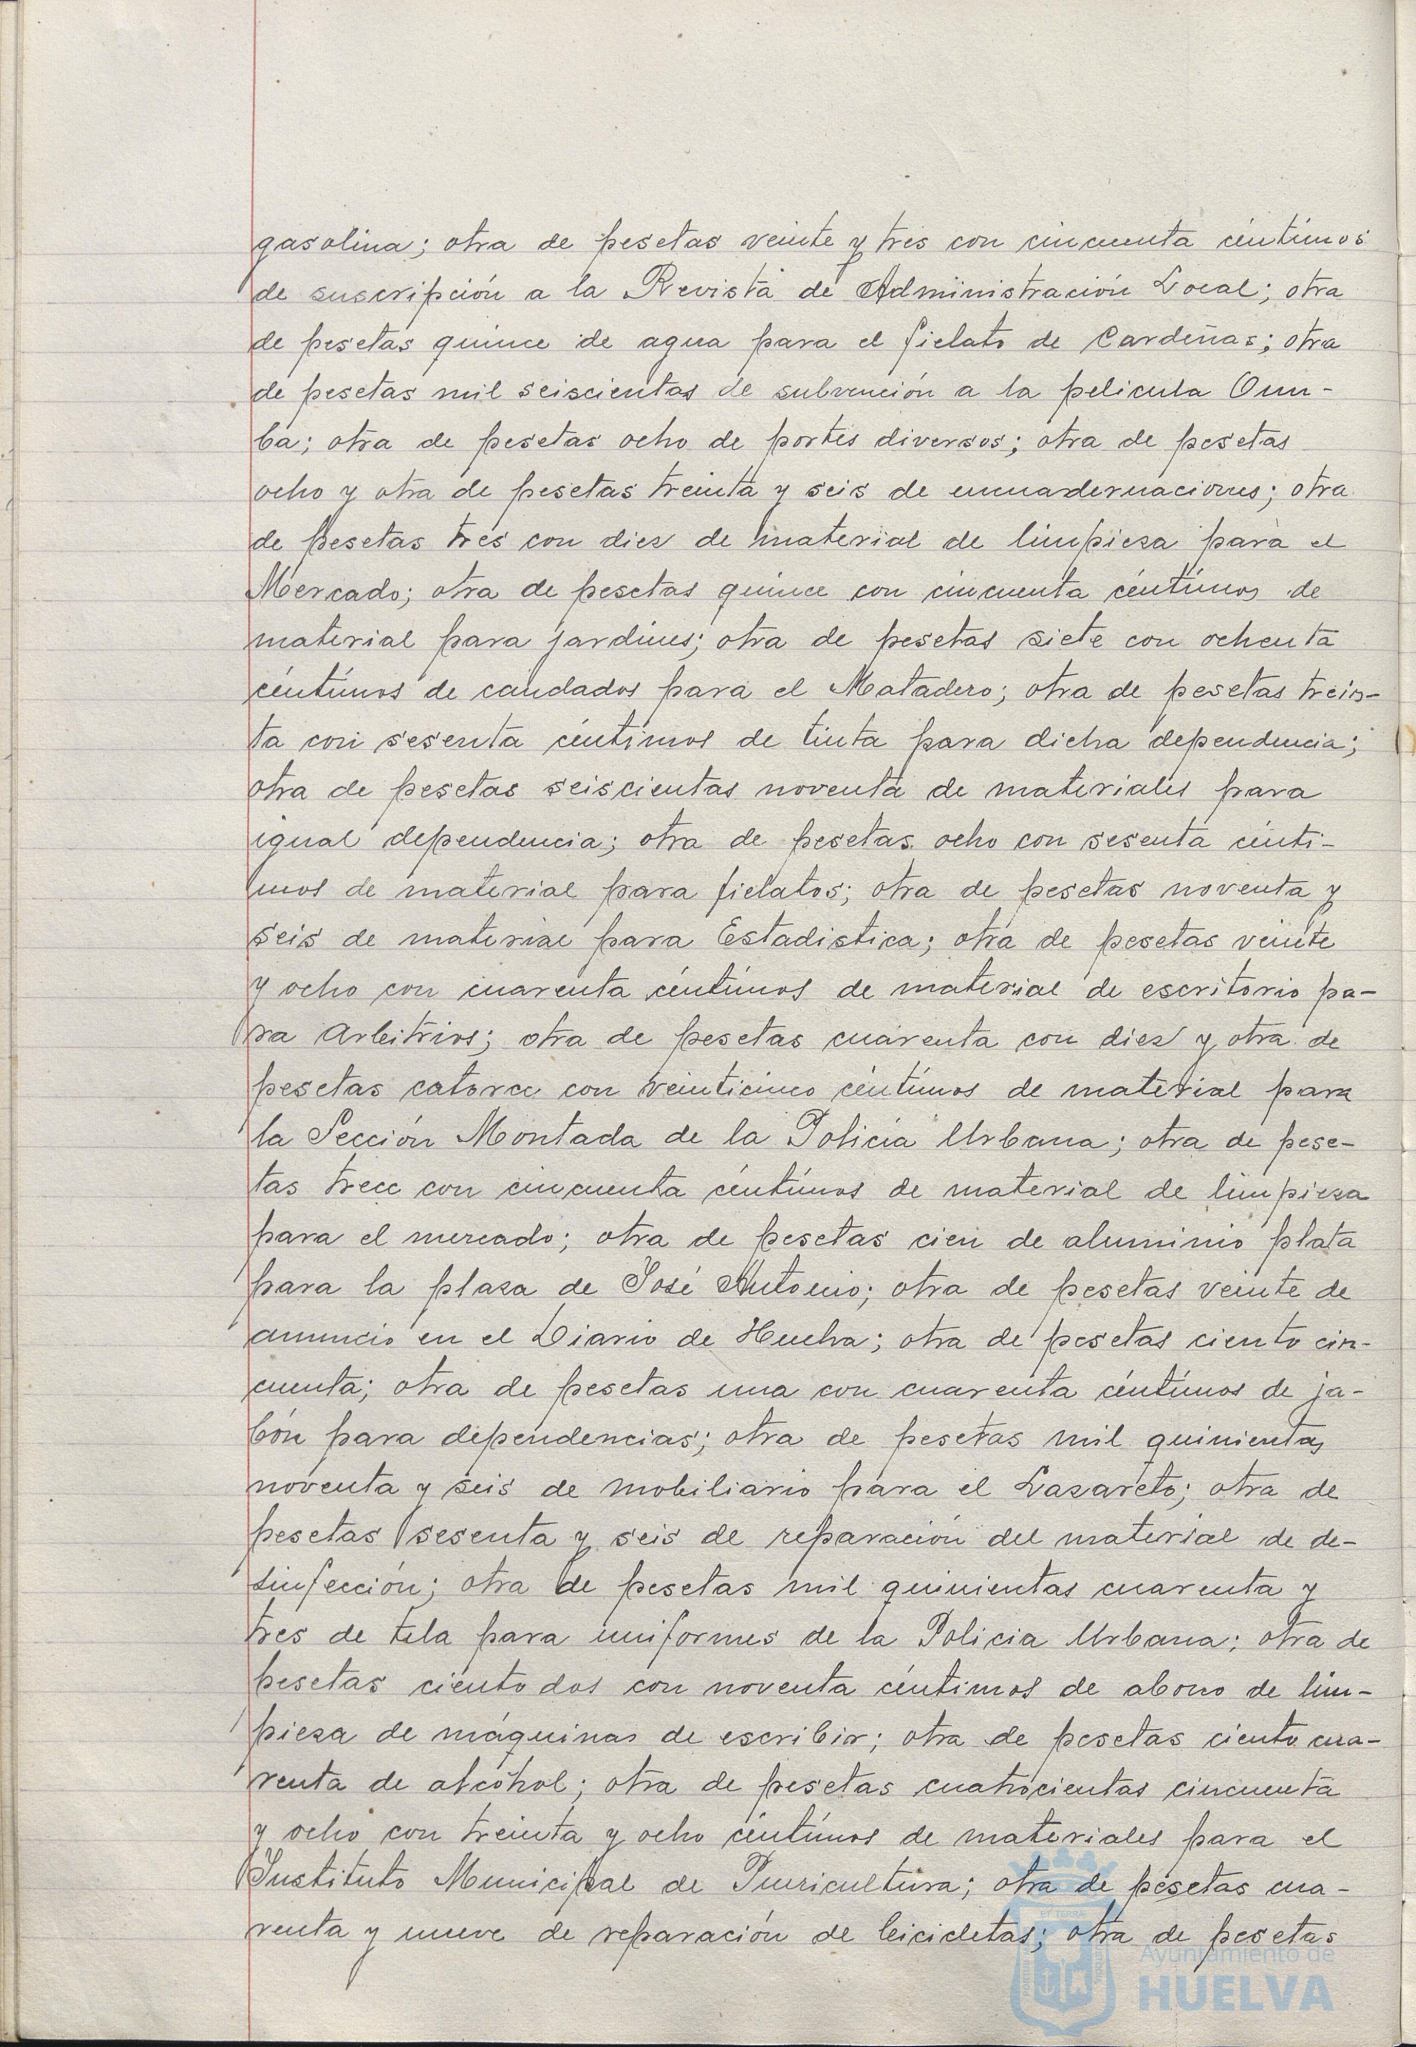 gasolina; otra de pesetas veinte y tres con cincuenta céntimos
de suscripción a la Revista de Administración Local; otra
de pesetas quince de agua para el fielato de Cardeñas; otra
de pesetas mil seiscientas de subvención a la pelicula Onu-
ba; otra de pesetas ocho de portes diversos; otra de pesetas
ocho y otra de pesetas treinta y seis de encuadernaciones; otra
de pesetas tres con diez de material de limpieza para el
Mercado; otra de pesetas quince con cincuenta céntimos de
material para jardines; otra de pesetas siete con ochenta
céntimos de candados para el Matadero; otra de pesetas trein-
ta con sesenta céntimos de tinta para dicha dependencia;
otra de pesetas seiscientas noventa de materiales para
igual dependencia; otra de pesetas ocho con sesenta cénti-
mos de material para fielatos; otra de pesetas noventa y
seis de material para Estadistica; otra de pesetas veinte
y ocho con cuarenta céntimos de material de escritorio pa-
ra Arbitrios; otra de pesetas cuarenta con diez y otra de
pesetas catorce con veinticinco céntimos de material para
la Sección Montada de la Policia Urbana; otra de pese-
tas trece con cincuenta céntimos de material de limpieza
para el mercado; otra de pesetas cien de aluminio plata
para la plaza de José Antonio; otra de pesetas veinte de
anuncio en el Diario de Huelva; otra de pesetas ciento cin-
cuenta; otra de pesetas una con cuarenta céntimos de ja-
bón para dependencias; otra de pesetas mil quinientas
noventa y seis de mobiliario para el Lazareto; otra de
pesetas sesenta y seis de reparación del material de de-
sinfección; otra de pesetas mil quinientas cuarenta y
tres de tela para uniformes de la Policia Urbana; otra de
pesetas ciento dos con noventa céntimos de abono de lim-
pieza de máquinas de escribir; otra de pesetas ciento cua-
renta de alcóhol; otra de pesetas cuatrocientas cincuenta
y ocho con treinta y ocho céntimos de materiales para el
Instituto Municipal de Puericultura; otra de pesetas cua-
renta y nueve de reparación de bicicletas; otra de pesetas
Ayuntamiento de
HUELVA